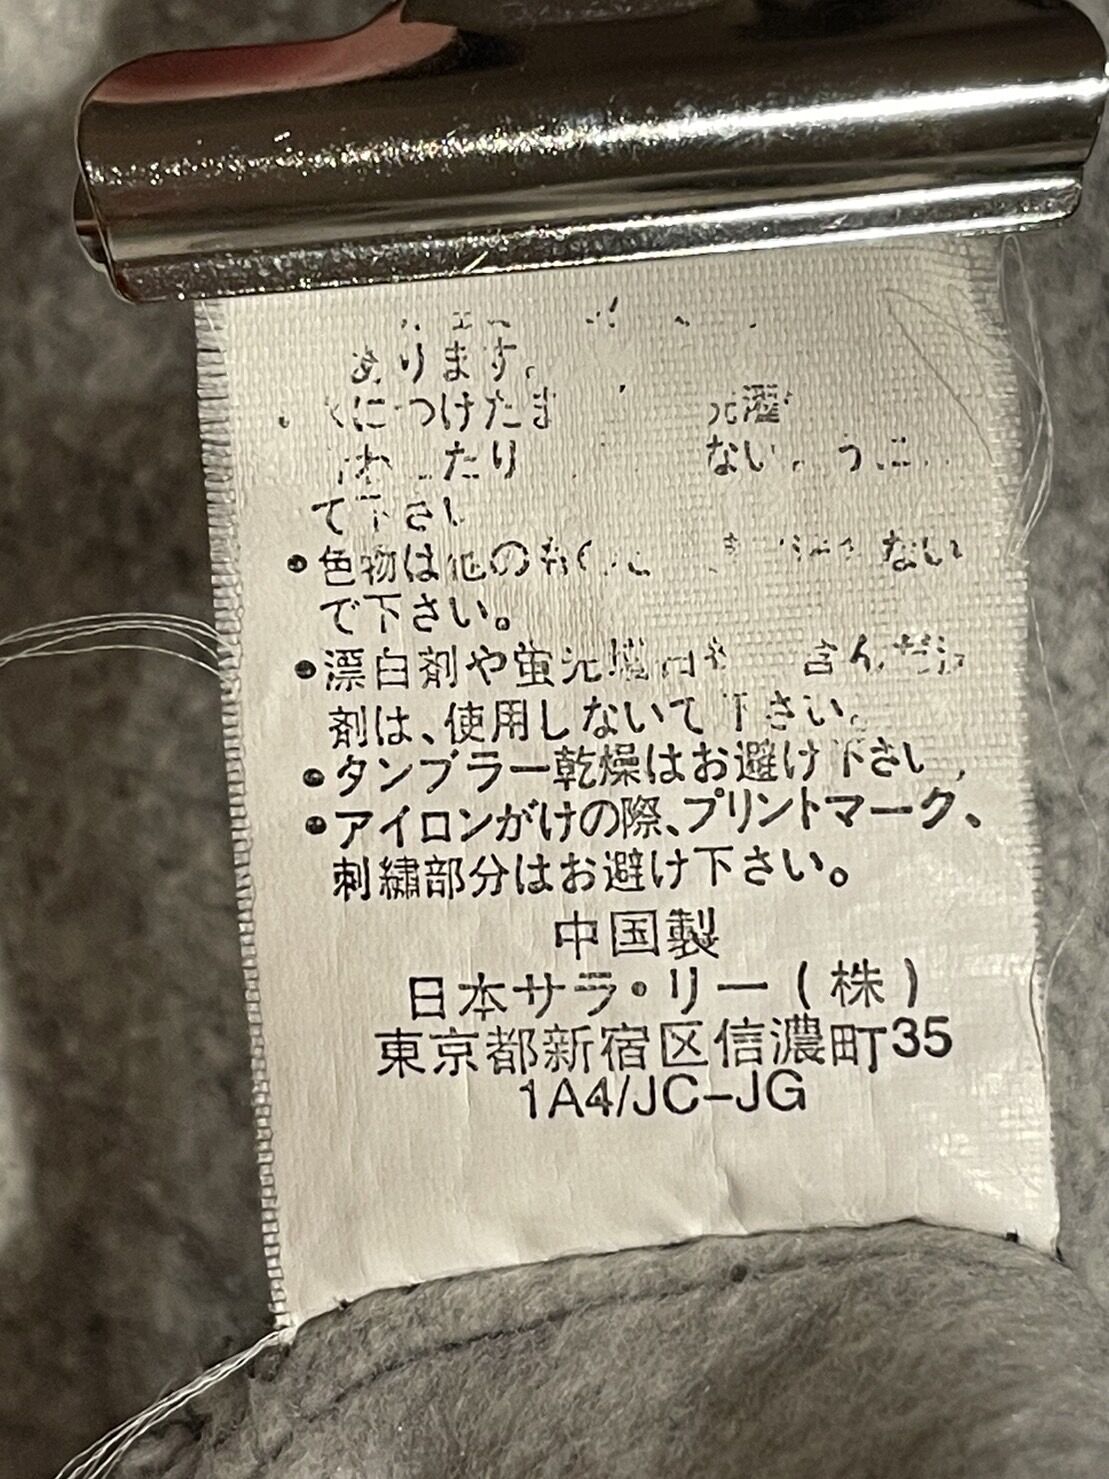 あります。
につけたま
たり ない
て下さい
•色物は他のもの ない
で下さい。
•漂白剤や蛍光増白 含んだ洗
剤は、使用しないで下さい。
•タンブラー乾燥はお避け下さい
•アイロンがけの際、プリントマーク、
刺繍部分はお避け下さい。
中国製
日本サラ・リー(株)
東京都新宿区信濃町35
1A4/JC-JG